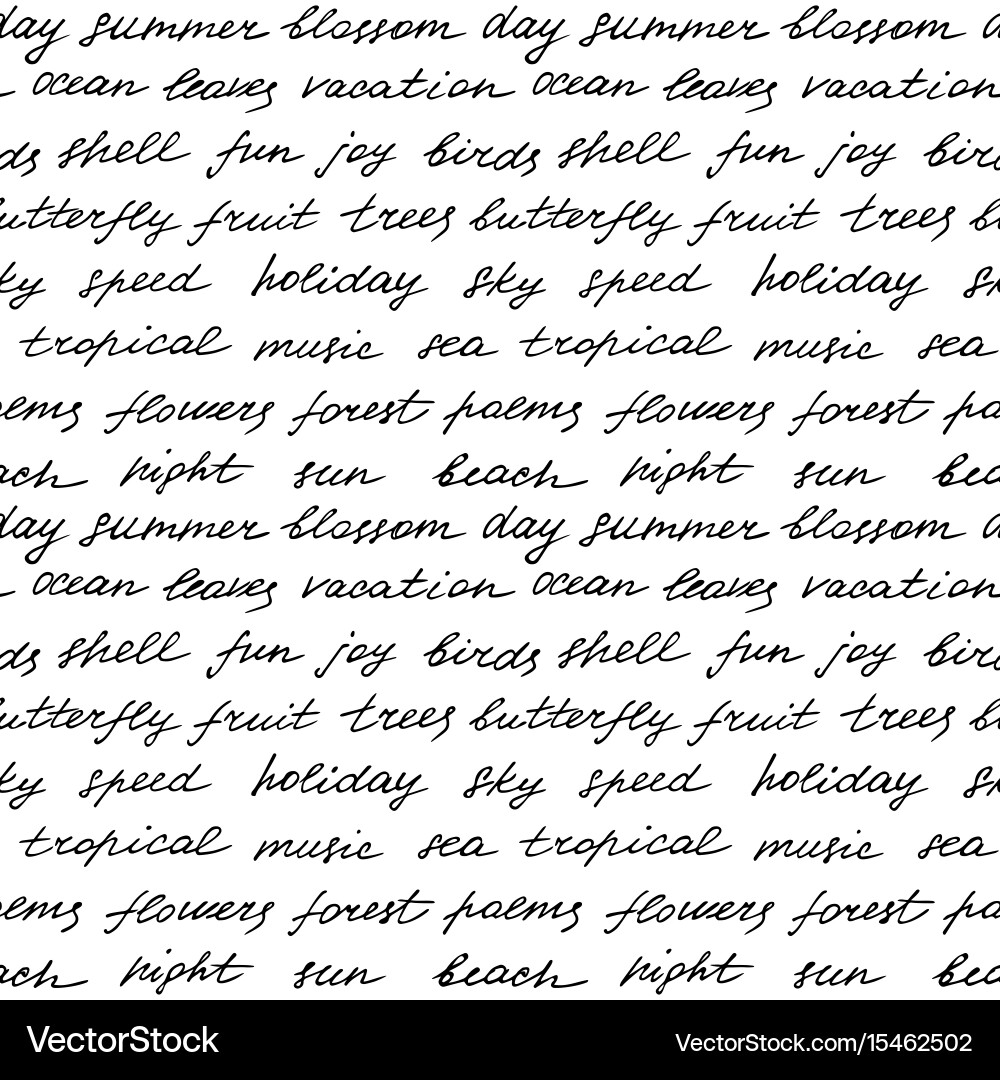 day summer blossom day summer blossom d
ocean leaves vacation ocean leaves vacation
ds shell fun joy birds shell fun joy bird
utterfly fruit trees butterfly fruit trees b
ky speed holiday sky speed holiday sk
tropical music sea tropical music sea
oems flowers forest poems flowers forest po
ach night sun beach night sun bea
day summer blossom day summer blossom d
ocean leaves vacation ocean leaves vacation
ds shell fun joy birds shell fun joy bird
utterfly fruit trees butterfly fruit trees b
ky speed holiday sky speed holiday sk
tropical music sea tropical music sea
oems flowers forest poems flowers forest po
ach night sun beach night sun bea
VectorStock VectorStock.com/15462502